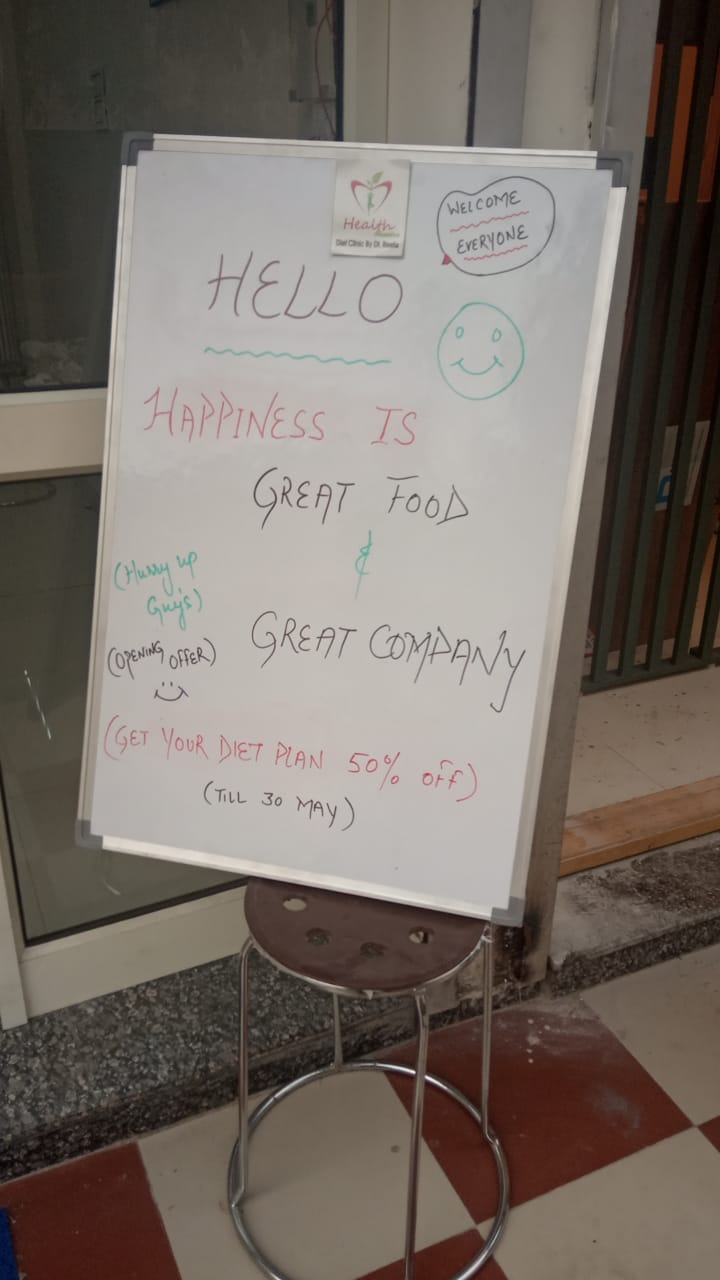 Health
Diet Clinic By Dt.
WELCOME
EVERYONE
HELLO
HAPPINESS IS
GREAT FOOD
&
GREAT COMPANY
(Hurry up
Guy's)
(OPENING OFFER)
(GET YOUR DIET PLAN 50% OFF)
(TILL 30 MAY)